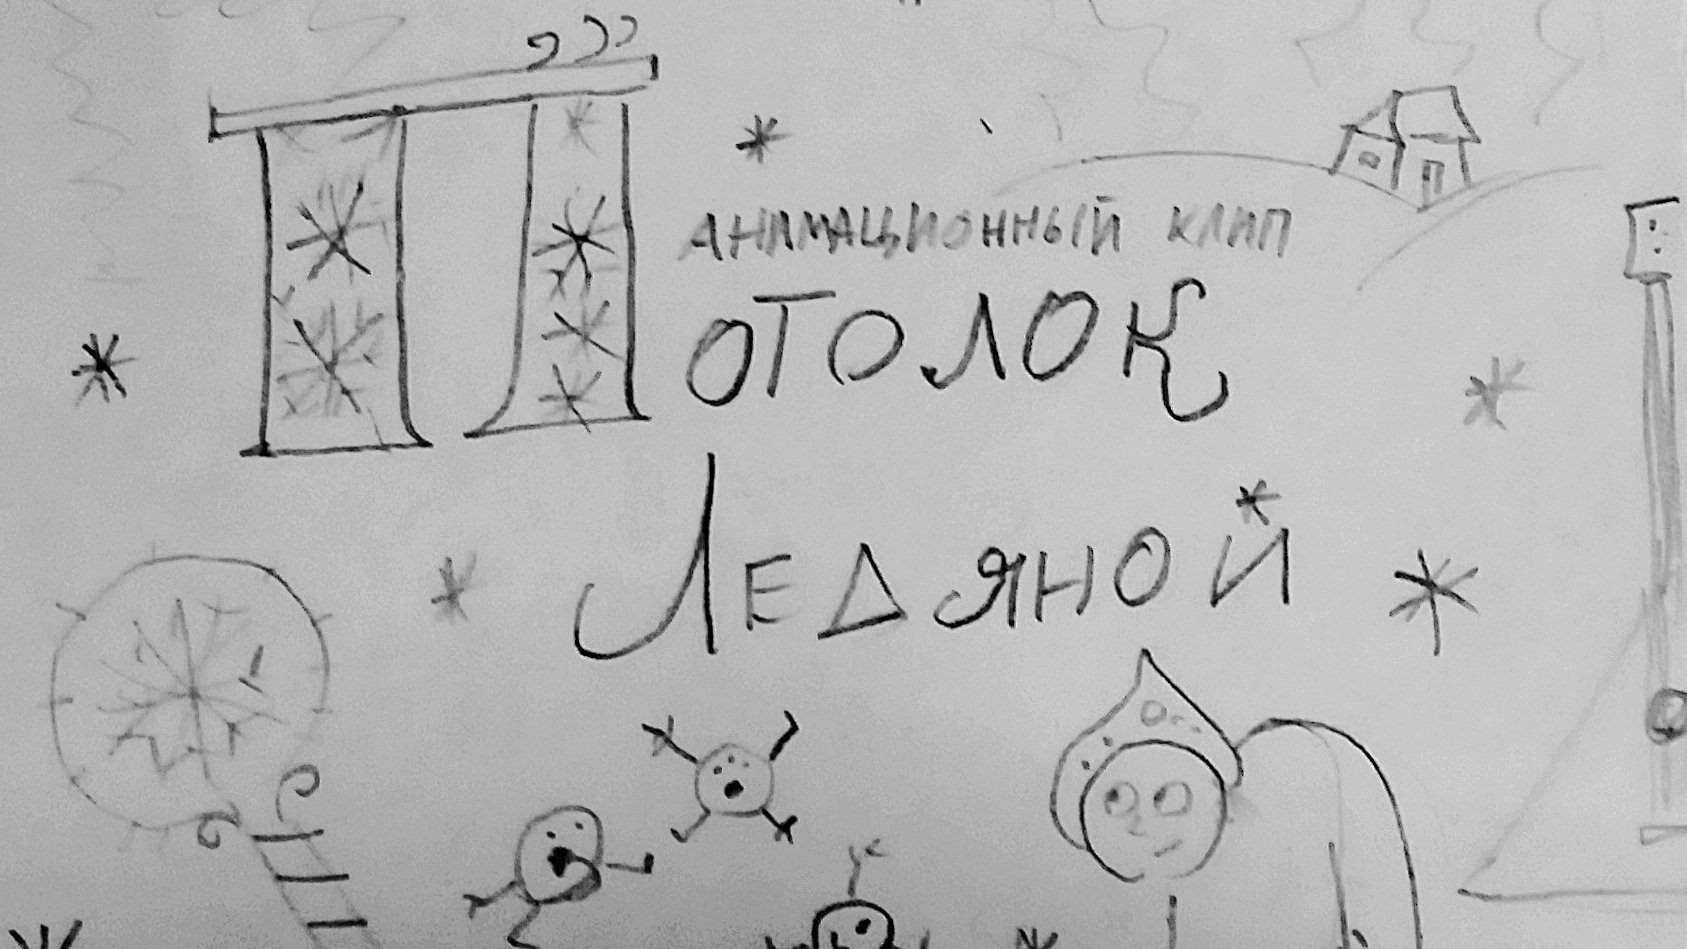 АНИМАЦИОННЫЙ КЛИП
ПОТОЛОК
ЛЕДЯНОЙ